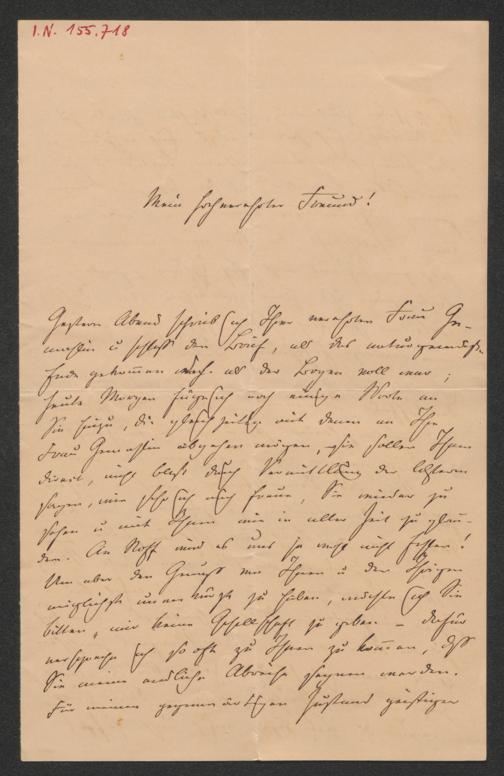 I.N. 155.718
Mein hochverehrter Freund!
Gestern Abend schrieb ich Ihrer verehrten Frau Ge-
mahlin u schloß den Brief, als das naturgemäße
Ende gekommen als der Bogen voll war;
heute Morgen füge ich noch einige Worte an
Sie hinzu, die gleichzeitig mit denen an Ihre
Frau Gemahlin abgehen mögen, sie sollen Ihnen
direct, nicht bloß durch Vermittlung der letzteren
sagen, wie sehr ich mich freue, Sie wieder zu
sehen u mit Ihnen wie in alter Zeit zu plau-
dern. An Stoff wird es uns ja wohl nicht fehlen!
Um aber den Genuß von Ihnen u den Ihrigen
möglichst unverkürzt zu haben, möchte ich Sie
bitten, mir keine Gesellschaft zu geben – dafür
verspreche ich so oft zu Ihnen zu kommen, daß
Sie meine endliche Abreise segnen werden.
Für meinen gegenwärtigen Zustand geistiger